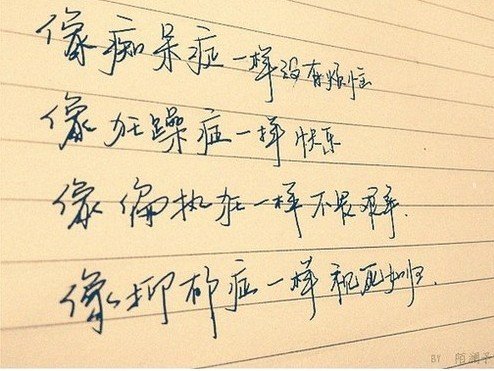 像痴呆症一样没有烦恼
像狂躁症一样快乐
像偏执狂一样不畏艰辛.
像抑郁症一样视死如归.
BY 陌澜